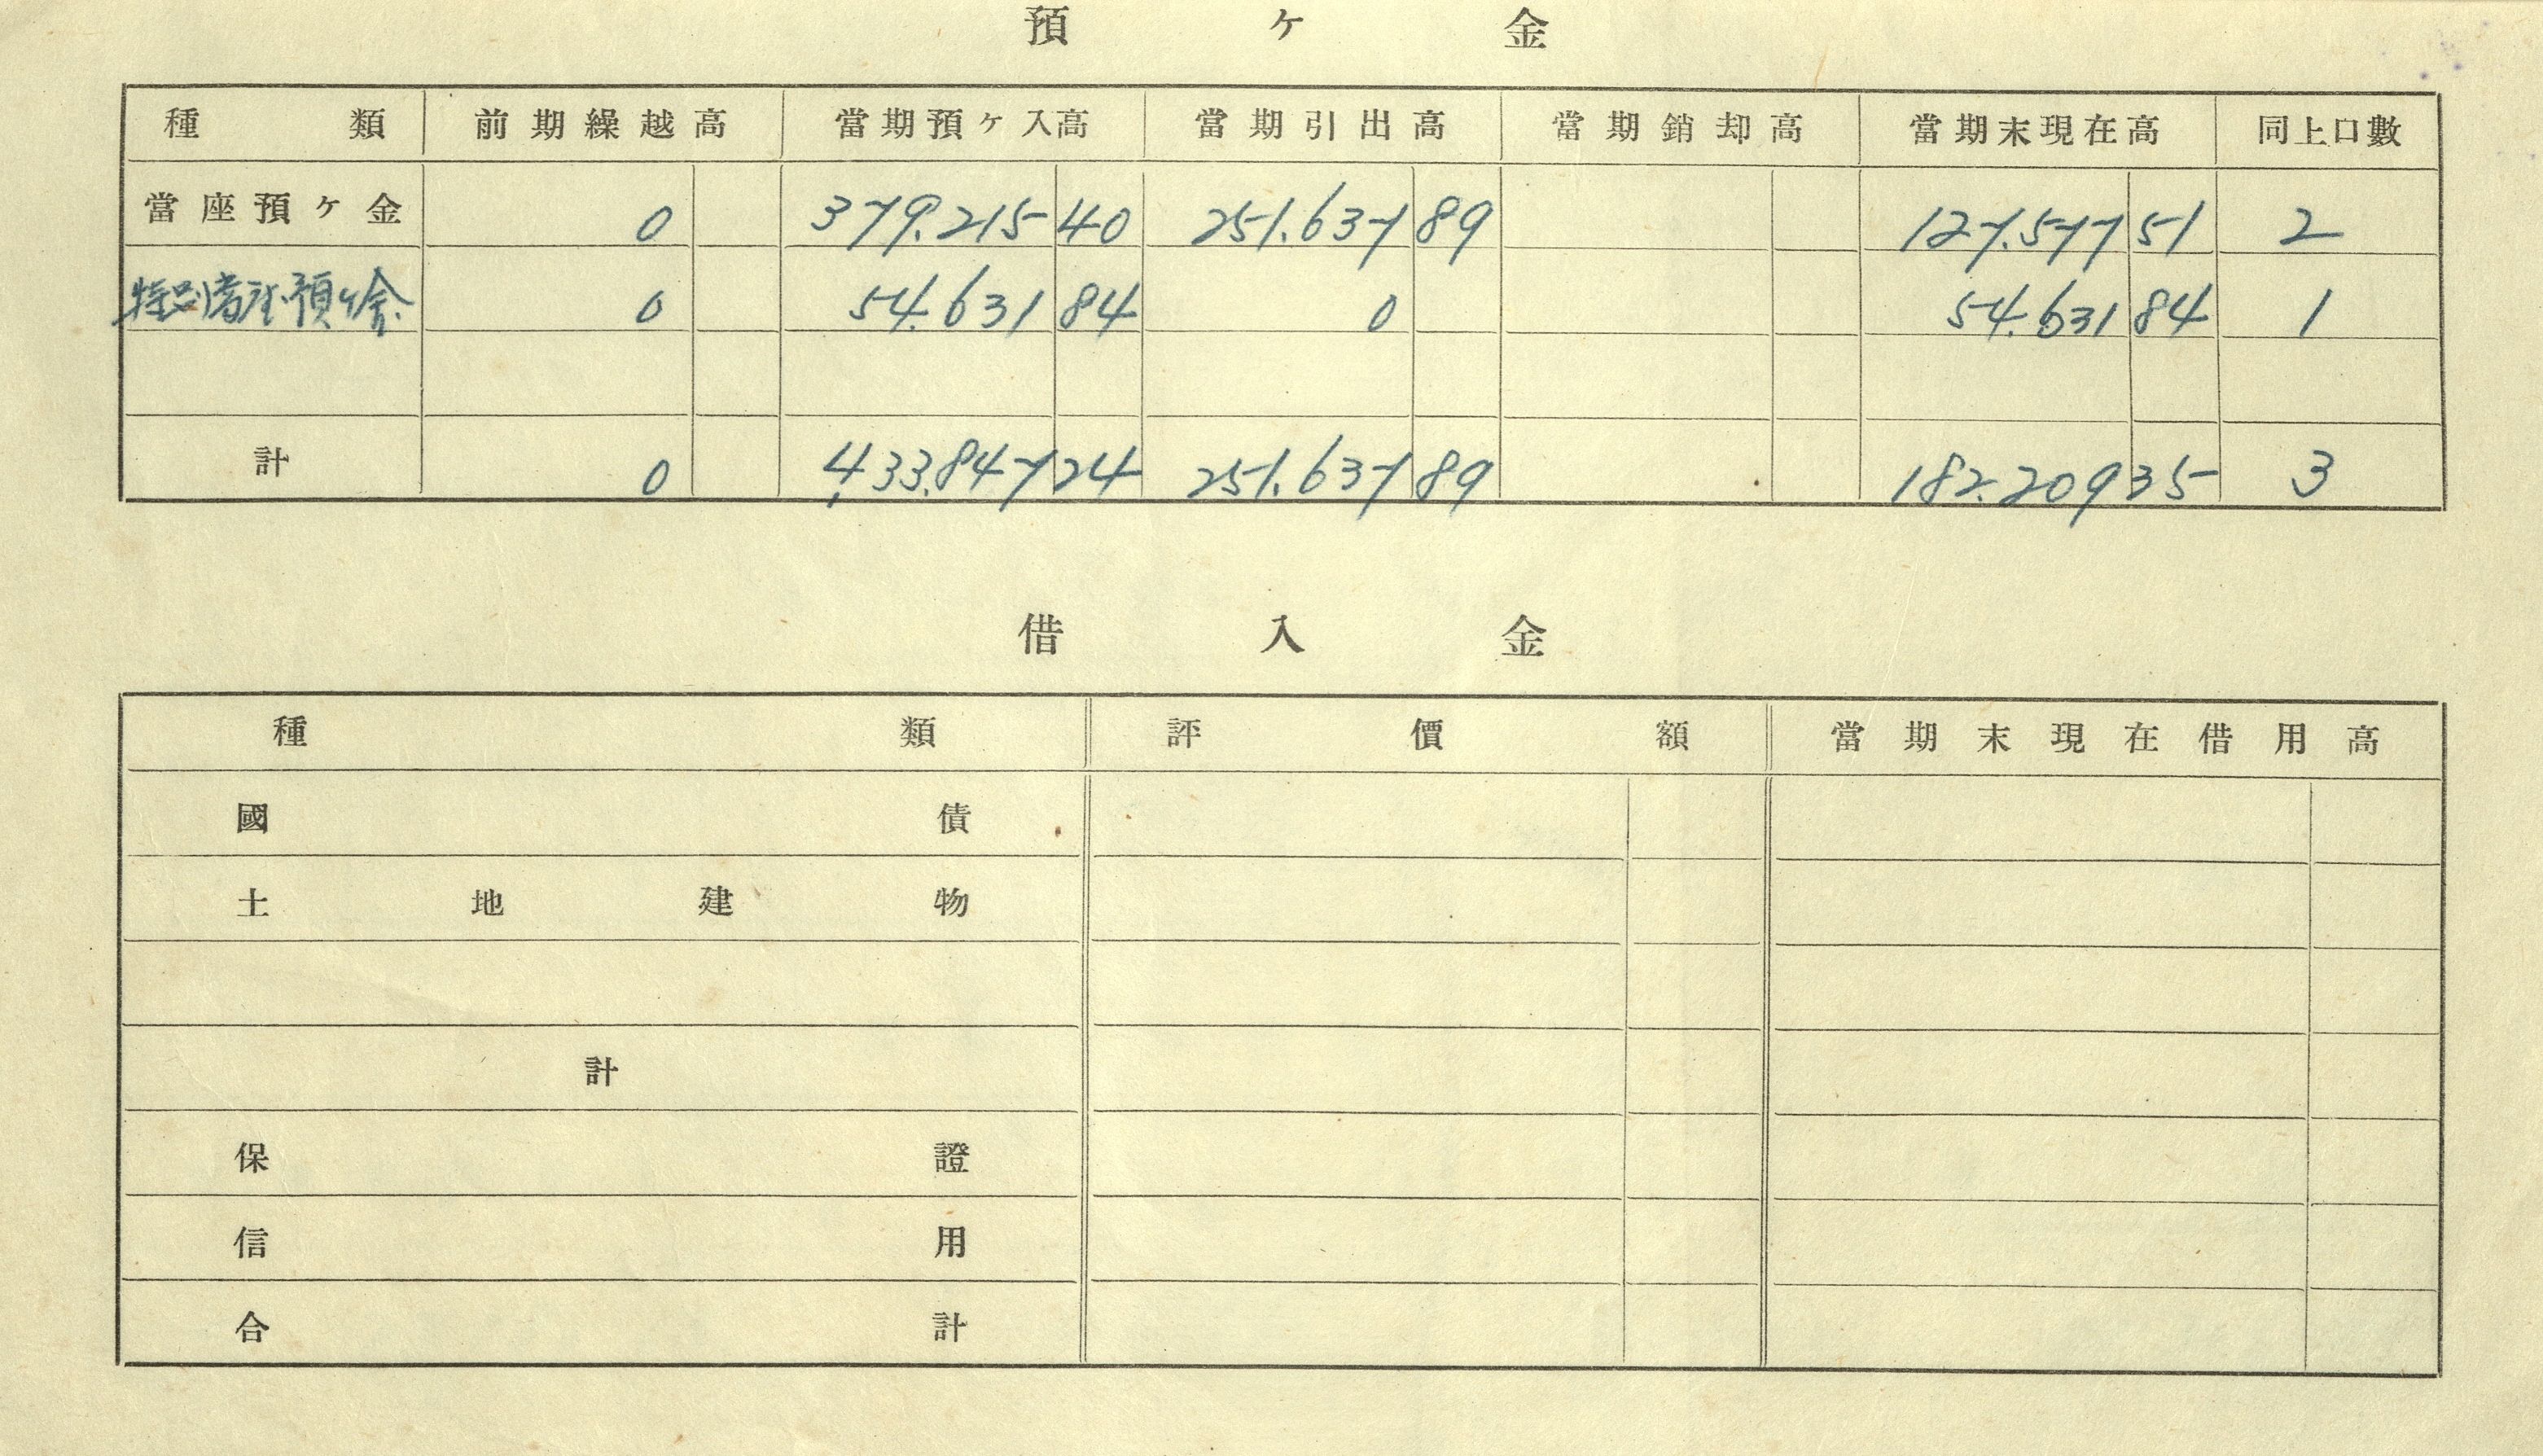 預ヶ金
種類 前期繰越高 當期預ヶ入高 當期引出高 當期銷却高 當期末現在高 同上口數
當座預ヶ金 0 379.215 40 251.637 89 127.577 51 2
特別當座預ヶ金 0 54.631 84 0 54.631 84 1
計 0 433.847 24 251.637 89 182.209 35 3
借入金
種類 評價額 當期末現在借用高
國債
土地建物
計
保證
信用
合計